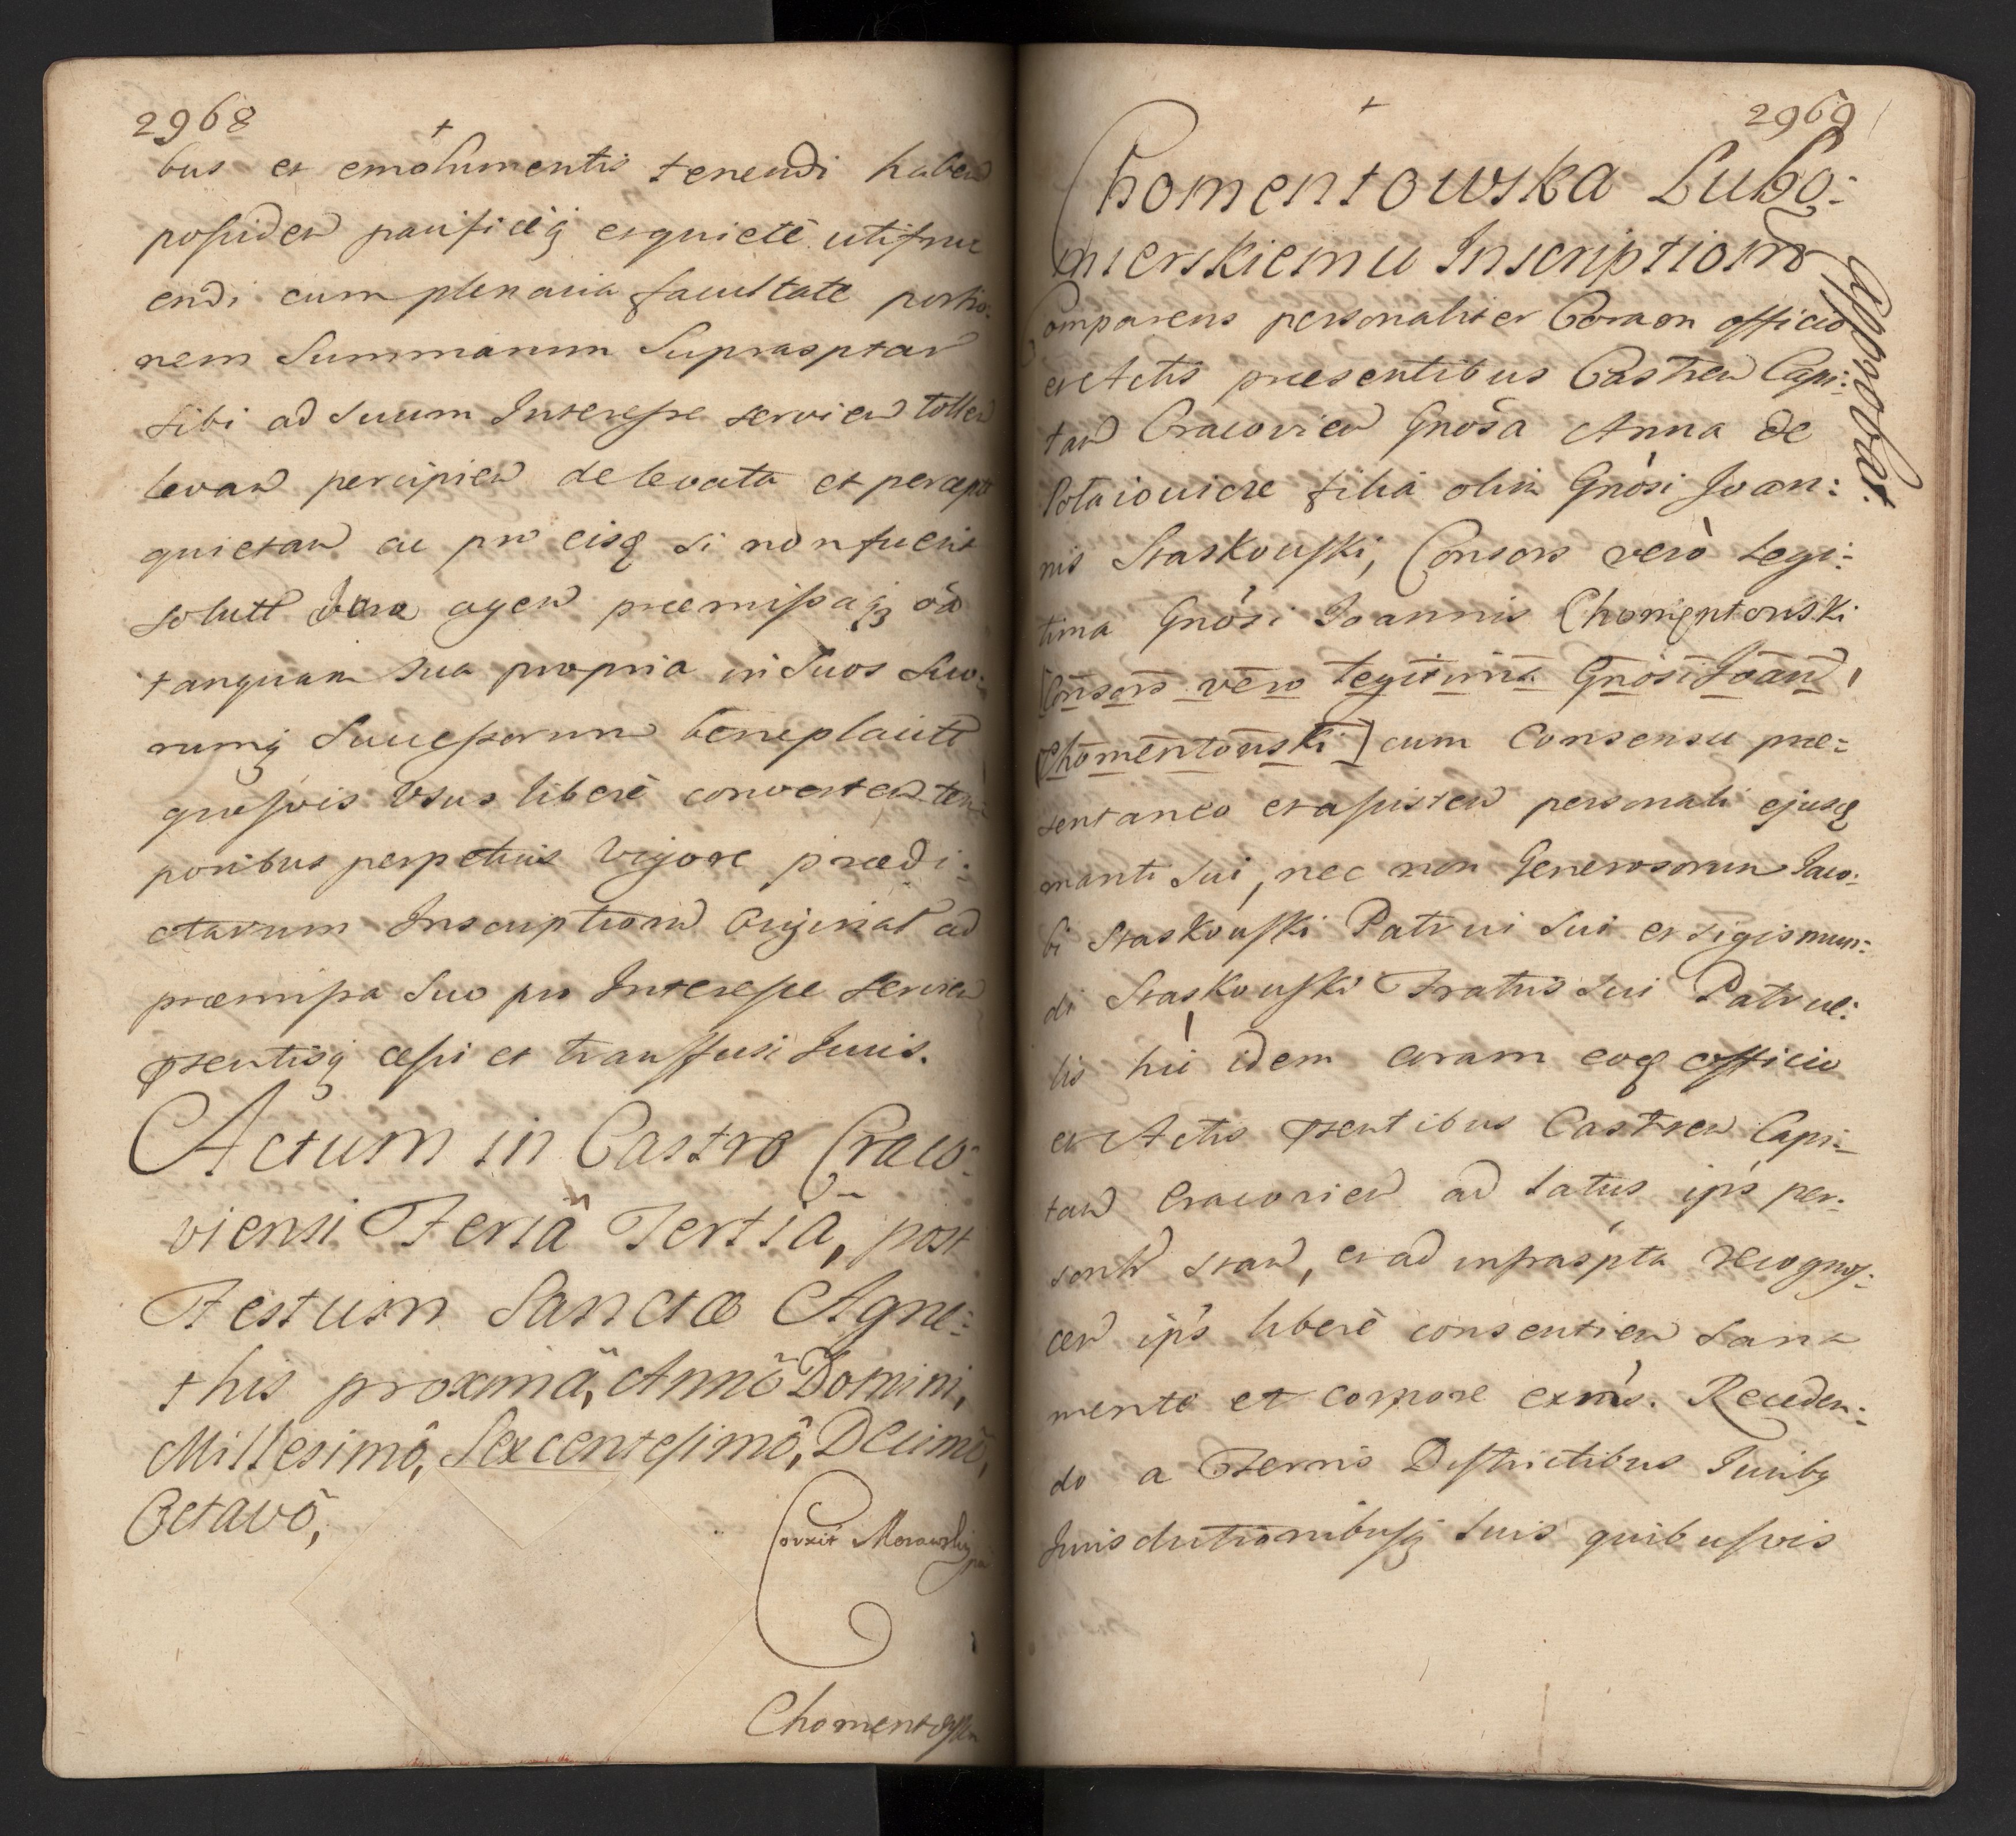 2968
+
bus et emolumentis tenendi haben
possiden pacificeq et quiete utifru
endi cum plenaria facultate portio:
nem Summarum Suprasptar
sibi ad suum Interesse servien tollen
levan percipien de levatis et percept
quietan ac pro eisq si non fuerit
solutt Jure agen præmissaqz oia
tanquam sua propria in suos suo:
rumq Successorum beneplacitt
quosvis Usus liberè converten tem
poribus perpetuis vigore prædi:
ctarum Inscription Original ad
præmissa suo pro Interesse servien
psentisq cessi et transfusi Juris.
Actum in Castro Craco:
viensi Feriâ Tertiâ, post
Festum Sanctæ Agne:
this proximâ, Annô Domini,
Millesimô, Sexcentesimô, Decimô,
Octavô,
Corxit Morawski
Chomentowska
2969
+
Chomentowska Lubo:
mierskiemu Inscription
Comparens personaliter Coram officio
et Actis præsentibus Castren Capi:
tan Cracovien Gnosa Anna de
filia olim Gnosi Joan:
nis Staskowski, Consors verò Legi:
tima Gnosi Joannis Chomentowski
[Consors vero Legitima Gnosi Joan,
Chomentowski] cum Consensu præ:
sentaneo et assisten personali ejusq
mariti sui, nec non Generosorum Jaco:
bi Staskowski Patrui sui et Sigismun:
di Staskowski Fratris sui Patrue:
lis hic idem coram eoq officio
et Actis psentibus Castren Capi:
tan Cracovien ad Latus ips per:
sonlr stan, et ad infraspta recognos:
cen ips liberè consentien sana
mente et corpore exns. Receden:
do a Terris Districtibus Juribq
Jurisdictionibusq suis quibusvis